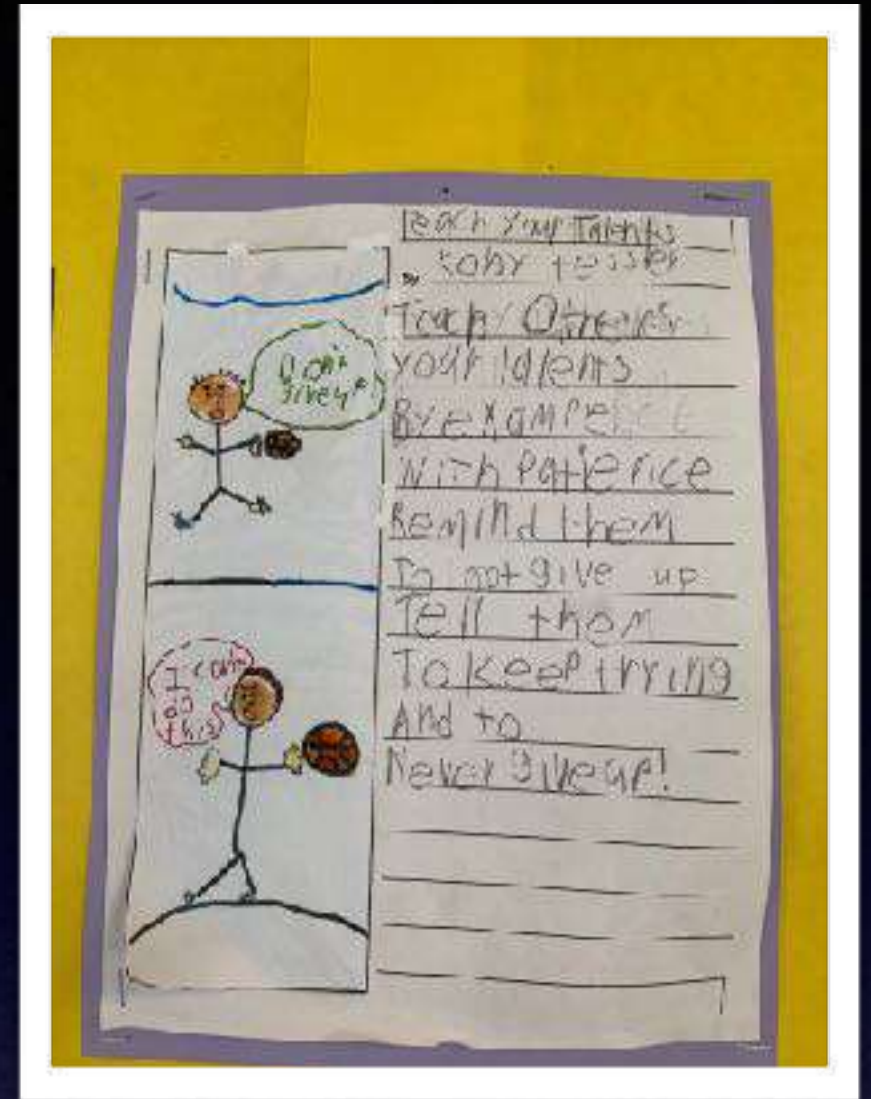 Don't
give up!
I can
do
this
Teach Your Talents
By
Teach Others
Your talents
By example
With Patience
Remind them
To not give up
Tell them
To keep trying
And to
Never give up!